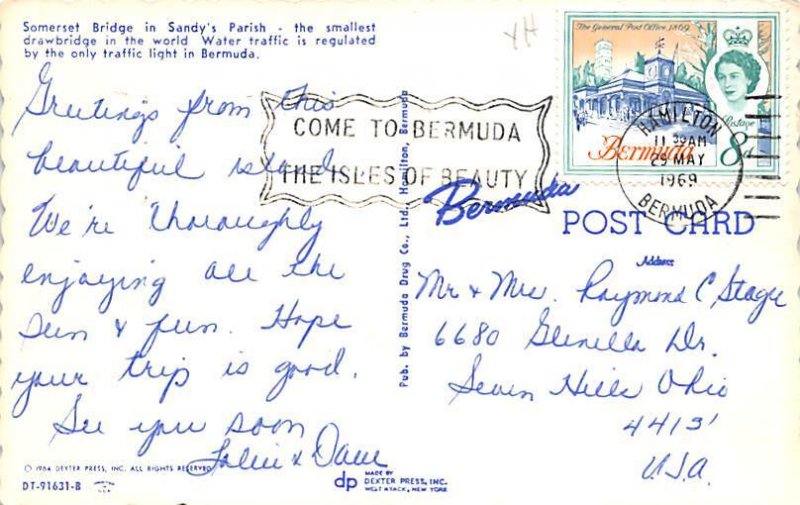 Somerset Bridge in Sandy's Parish - the smallest
drawbridge in the world Water traffic is regulated
by the only traffic light in Bermuda.
YH
Greetings from this
beautiful island.
We're thoroughly
enjoying all the
sun & fun. Hope
your trip is good.
See you soon
& Dave
© 1964 DEXTER PRESS, INC. ALL RIGHTS RESERVED
DT-91631-B
Pub. by Bermuda Drug Co., Ltd., Hamilton, Bermuda
COME TO BERMUDA
THE ISLES OF BEAUTY
The General Post Office, 1869
Postage
8d
Bermuda
HAMILTON
11 AM
29 MAY
1969
BERMUDA
Bermuda
POST CARD
Address
Mr & Mrs. Raymond C Stage
6680 Glenella Dr.
Seven Hills Ohio
44131
U.S.A.
dp
MADE BY
DEXTER PRESS, INC.
WEST NYACK, NEW YORK